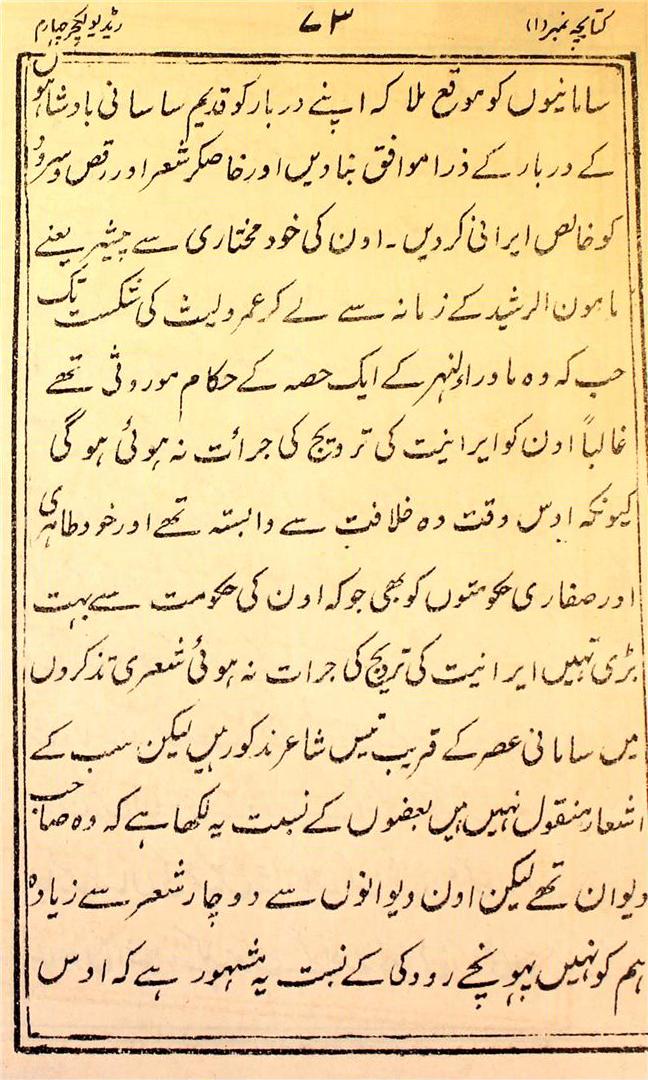 کتابچہ نمبر(۱) ۷۳ ریڈیو لکچر چہارم
سامانیوں کو موقع ملا کہ اپنے دربار کو قدیم ساسانی بادشاہوں
کے دربار کے ذرا موافق بنا دیں اور خاصکر شعر اور رقص و سرود
کو خالص ایرانی کر دیں۔ اون کی خود مختاری سے پیشتر یعنے
مامون الرشید کے زمانہ سے لے کر عمرو لیث کی شکست تک
جب کہ وہ ماوراءلنہر کے ایک حصہ کے حکام موروثی تھے
غالباً اون کو ایرانیت کی ترویج کی جرائت نہ ہوئی ہو گی
کیونکہ اوس وقت وہ خلافت سے وابستہ تھے اور خود طاہری
اور صفاری حکومتوں کو بھی جو کہ اون کی حکومت سے بہت
بڑی تہیں ایرانیت کی ترویج کی جرات نہ ہوئی شعری تذکروں
میں سامانی عصر کے قریب تیس شاعر مذکور ہیں لیکن سب کے
اشعار منقول نہیں ہیں بعضوں کے نسبت یہ لکھا ہے کہ وہ صاحب
دیوان تھے لیکن اون دیوانوں سے دو چار شعر سے زیادہ
ہم کو نہیں پہونچے رودکی کے نسبت یہ مشہور ہے کہ اوس